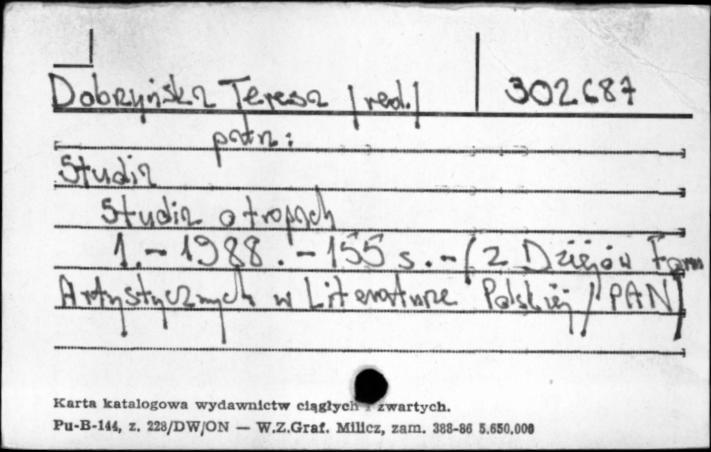 Dobrzyńska Teresa /red./ 302687
patrz:
Studia
Studia o tropach
1.- 1988. - 155 s. - (Z Dziejów Form
Artystycznych w Literaturze Polskiej / PAN)
Karta katalogowa wydawnictw ciągłych i zwartych.
Pu-B-144, z. 228/DW/ON — W.Z.Graf. Milicz, zam. 388-86 5.650.000